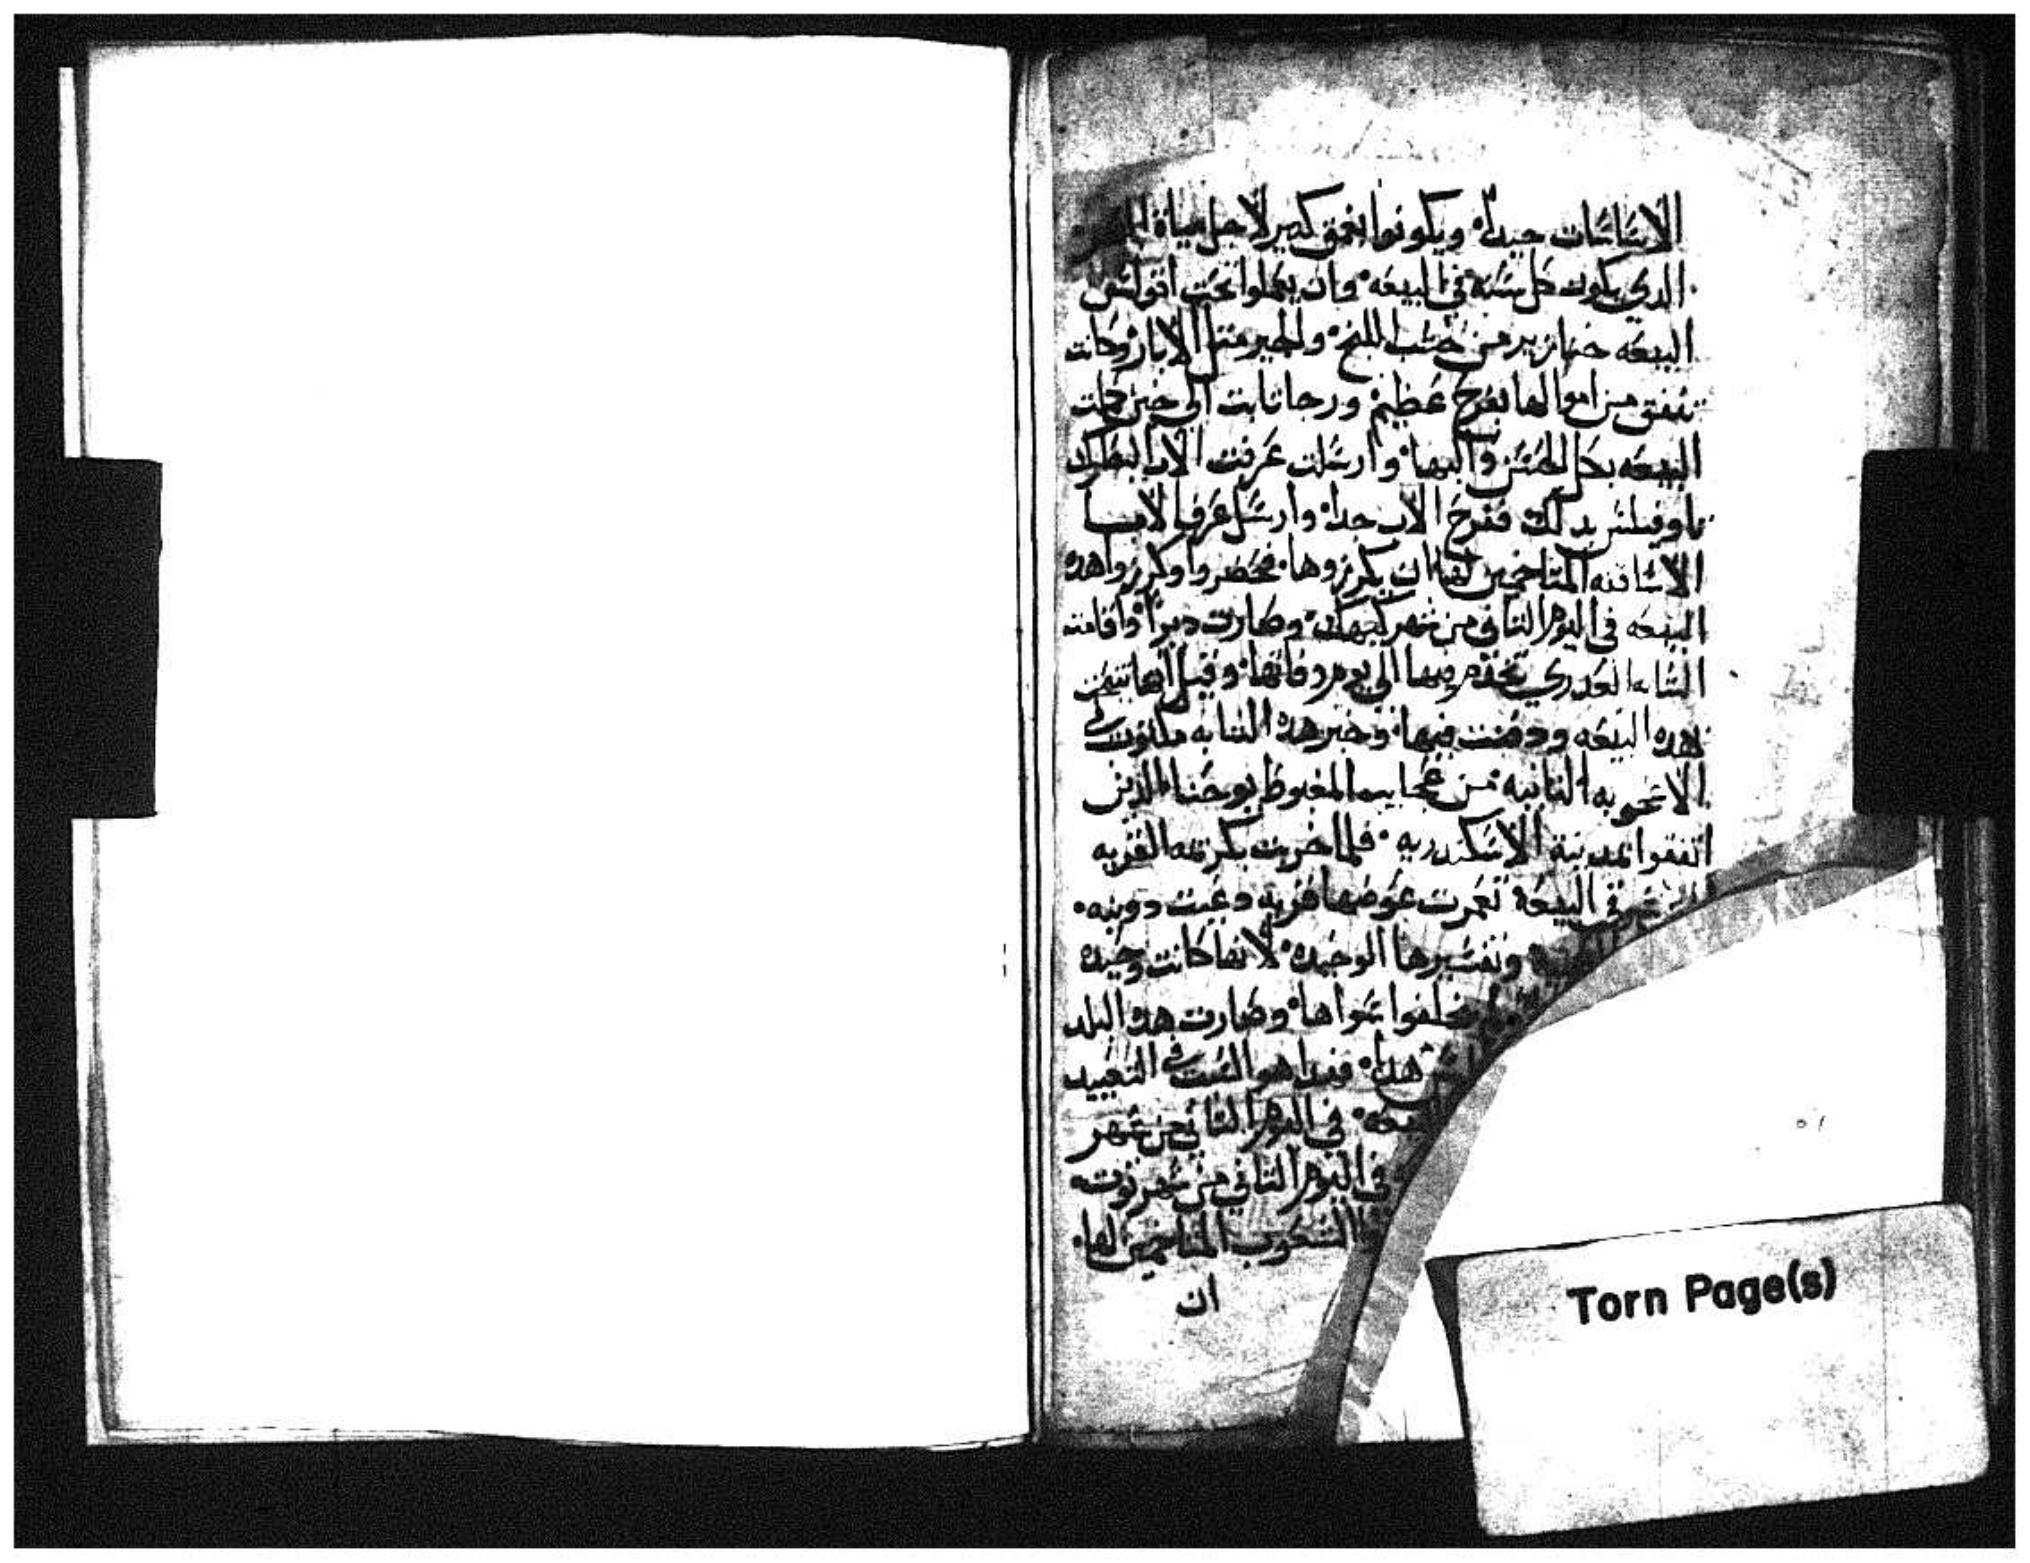 الاساسات جيداً ويكونوا بعمق كبير لاجل مياة
الدي يكون كل سنه في البيعه وان يعملوا تحت اقواس
البيعه خنازير من خشب اللبخ والجير مثل الابار وكانت
تنفق من اموالها بفرح عظيم ورجا ثابت الي حين كملت
البيعه بكل الحسن والبها وارسلت عرفت الاب البطرك
تاوفيلس بدلك ففرح الاب جدا وارسل عرف الابا
الاساقفه المتاخمين لها ان يكرزوها فحضروا وكرزوا هده
البيعه في اليوم التاني من شهر كيهك وصارت ديراً واقامت
الشابه العدري تخدم فيها الي يوم وفاتها وقيل انها تنيحت
هده البيعه ودفنت فيها وخبر هده الشابه مكتوب في
الاعجوبه التانيه من عجايب المغبوط يوحنا الدين
اتفقوا بمدينة الاسكندريه فلما خربت القريه
في البيعة تعمرت عوضها قريه دعيت دوينه
وتفسيرها الوحيده لانها كانت وحيده
يخلفوا سواها وصارت هده البلد
هدا فهدا هو السبب في التعييد
البيعه في اليوم التاني من شهر
في اليوم التاني من شهر توت
الشعوب المتاخمين لها
ان
Torn Page(s)